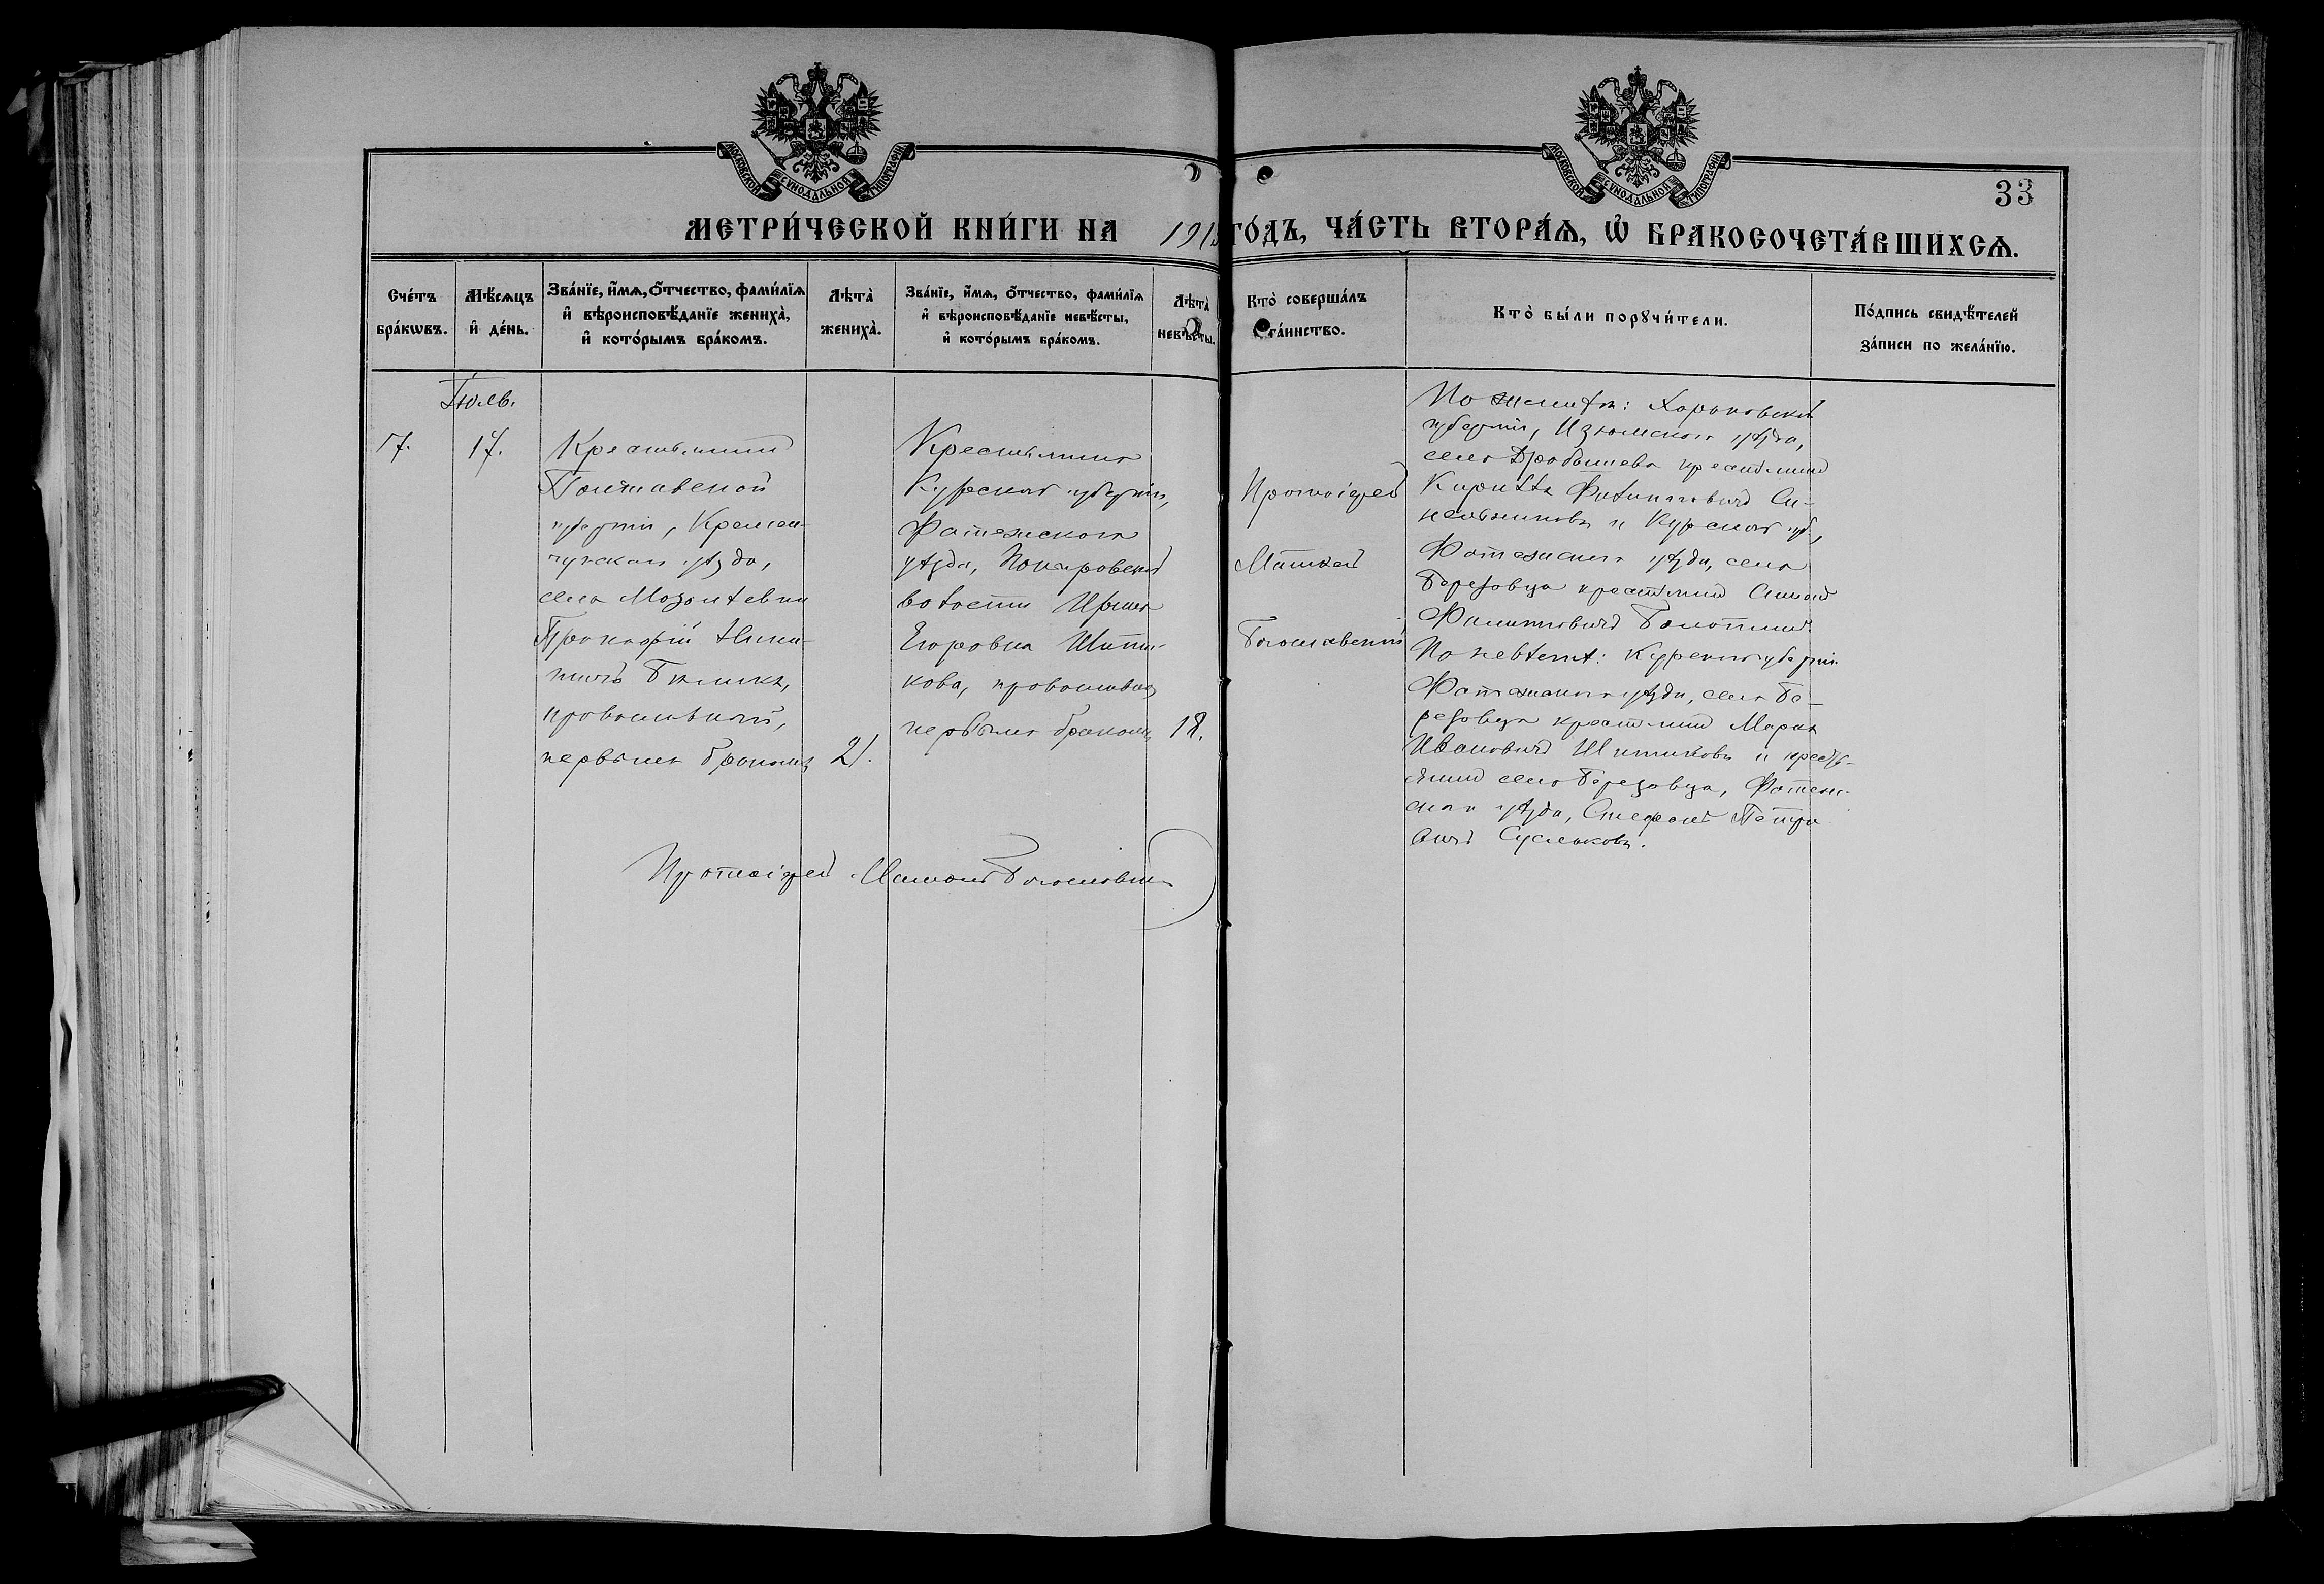 МОСКОВСКОЙ СѴНОДАЛЬНОЙ ТИПОГРАФІИ
МОСКОВСКОЙ СѴНОДАЛЬНОЙ ТИПОГРАФІИ
33
МЕТРИ́ЧЕСКОЙ КНИ́ГИ НА 191 ГО́ДЪ, ЧА́СТЬ ВТОРА́Ѧ, Ѽ БРАКОСОЧЕТА́ВШИХСѦ.
Сче́тъ бра́кѡвъ.
Мѣ́сѧцъ и҆ де́нь.
Зва́нїе, и҆́мѧ, ѻ҆́тчество, фами́лїѧ
и҆ вѣроисповѣ́данїе жениха̀,
и҆ кото́рымъ бра́комъ.
Лѣта̀ жениха̀.
Зва́нїе, и҆́мѧ, ѻ҆́тчество, фами́лїѧ
и҆ вѣроисповѣ́данїе невѣ́сты,
и҆ кото́рымъ бра́комъ.
Лѣта̀ невѣ́сты.
Кто̀ соверша́лъ
та́инство.
Кто̀ бы́ли порꙋчи́тели.
По́дпись свидѣ́телей
за́писи по жела́нїю.
Іюль.
17.
Крестьянинъ
Полтавской
губерніи, Кремен-
чугскаго уѣзда,
села
Прокофій Ники-
тичъ
православный,
первымъ бракомъ
21.
Крестьянка
Курской губерніи,
Фатежскаго
уѣзда, Покаровской
волости
Егоровна Шати-
кова, православнаго,
первымъ бракомъ
18.
Протоіерей
Богославскій
По женихѣ: Харьковской
губерніи, Изюмскаго уѣзда,
села Дробышева крестьянинъ
Кириллъ Филипповичъ Си-
нельниковъ и Курской губ.,
Фатежскаго уѣзда, села
Березовца крестьянинъ
Филипповичъ Болотинъ.
По невѣстѣ: Курской губерніи
Фатежскаго уѣзда, села Бе-
резовца крестьянинъ Маркъ
Ивановичъ и кресть-
янинъ села Березовца, Фатеж-
скаго уѣзда, Стефанъ Петро-
вичъ Сусликовъ.
Протоіерей